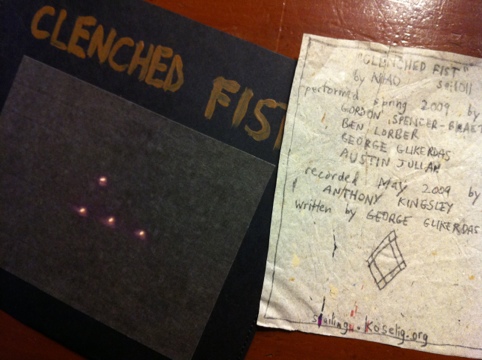 CLENCHED FIST
"CLENCHED FIST"
by
performed spring 2009 by
GORDON SPENCER-
BEN LORBER
GEORGE GLIKERDAS
AUSTIN JULIAN
recorded May 2009 by
ANTHONY KINGSLEY
written by GEORGE GLIKERDAS
koselig.org